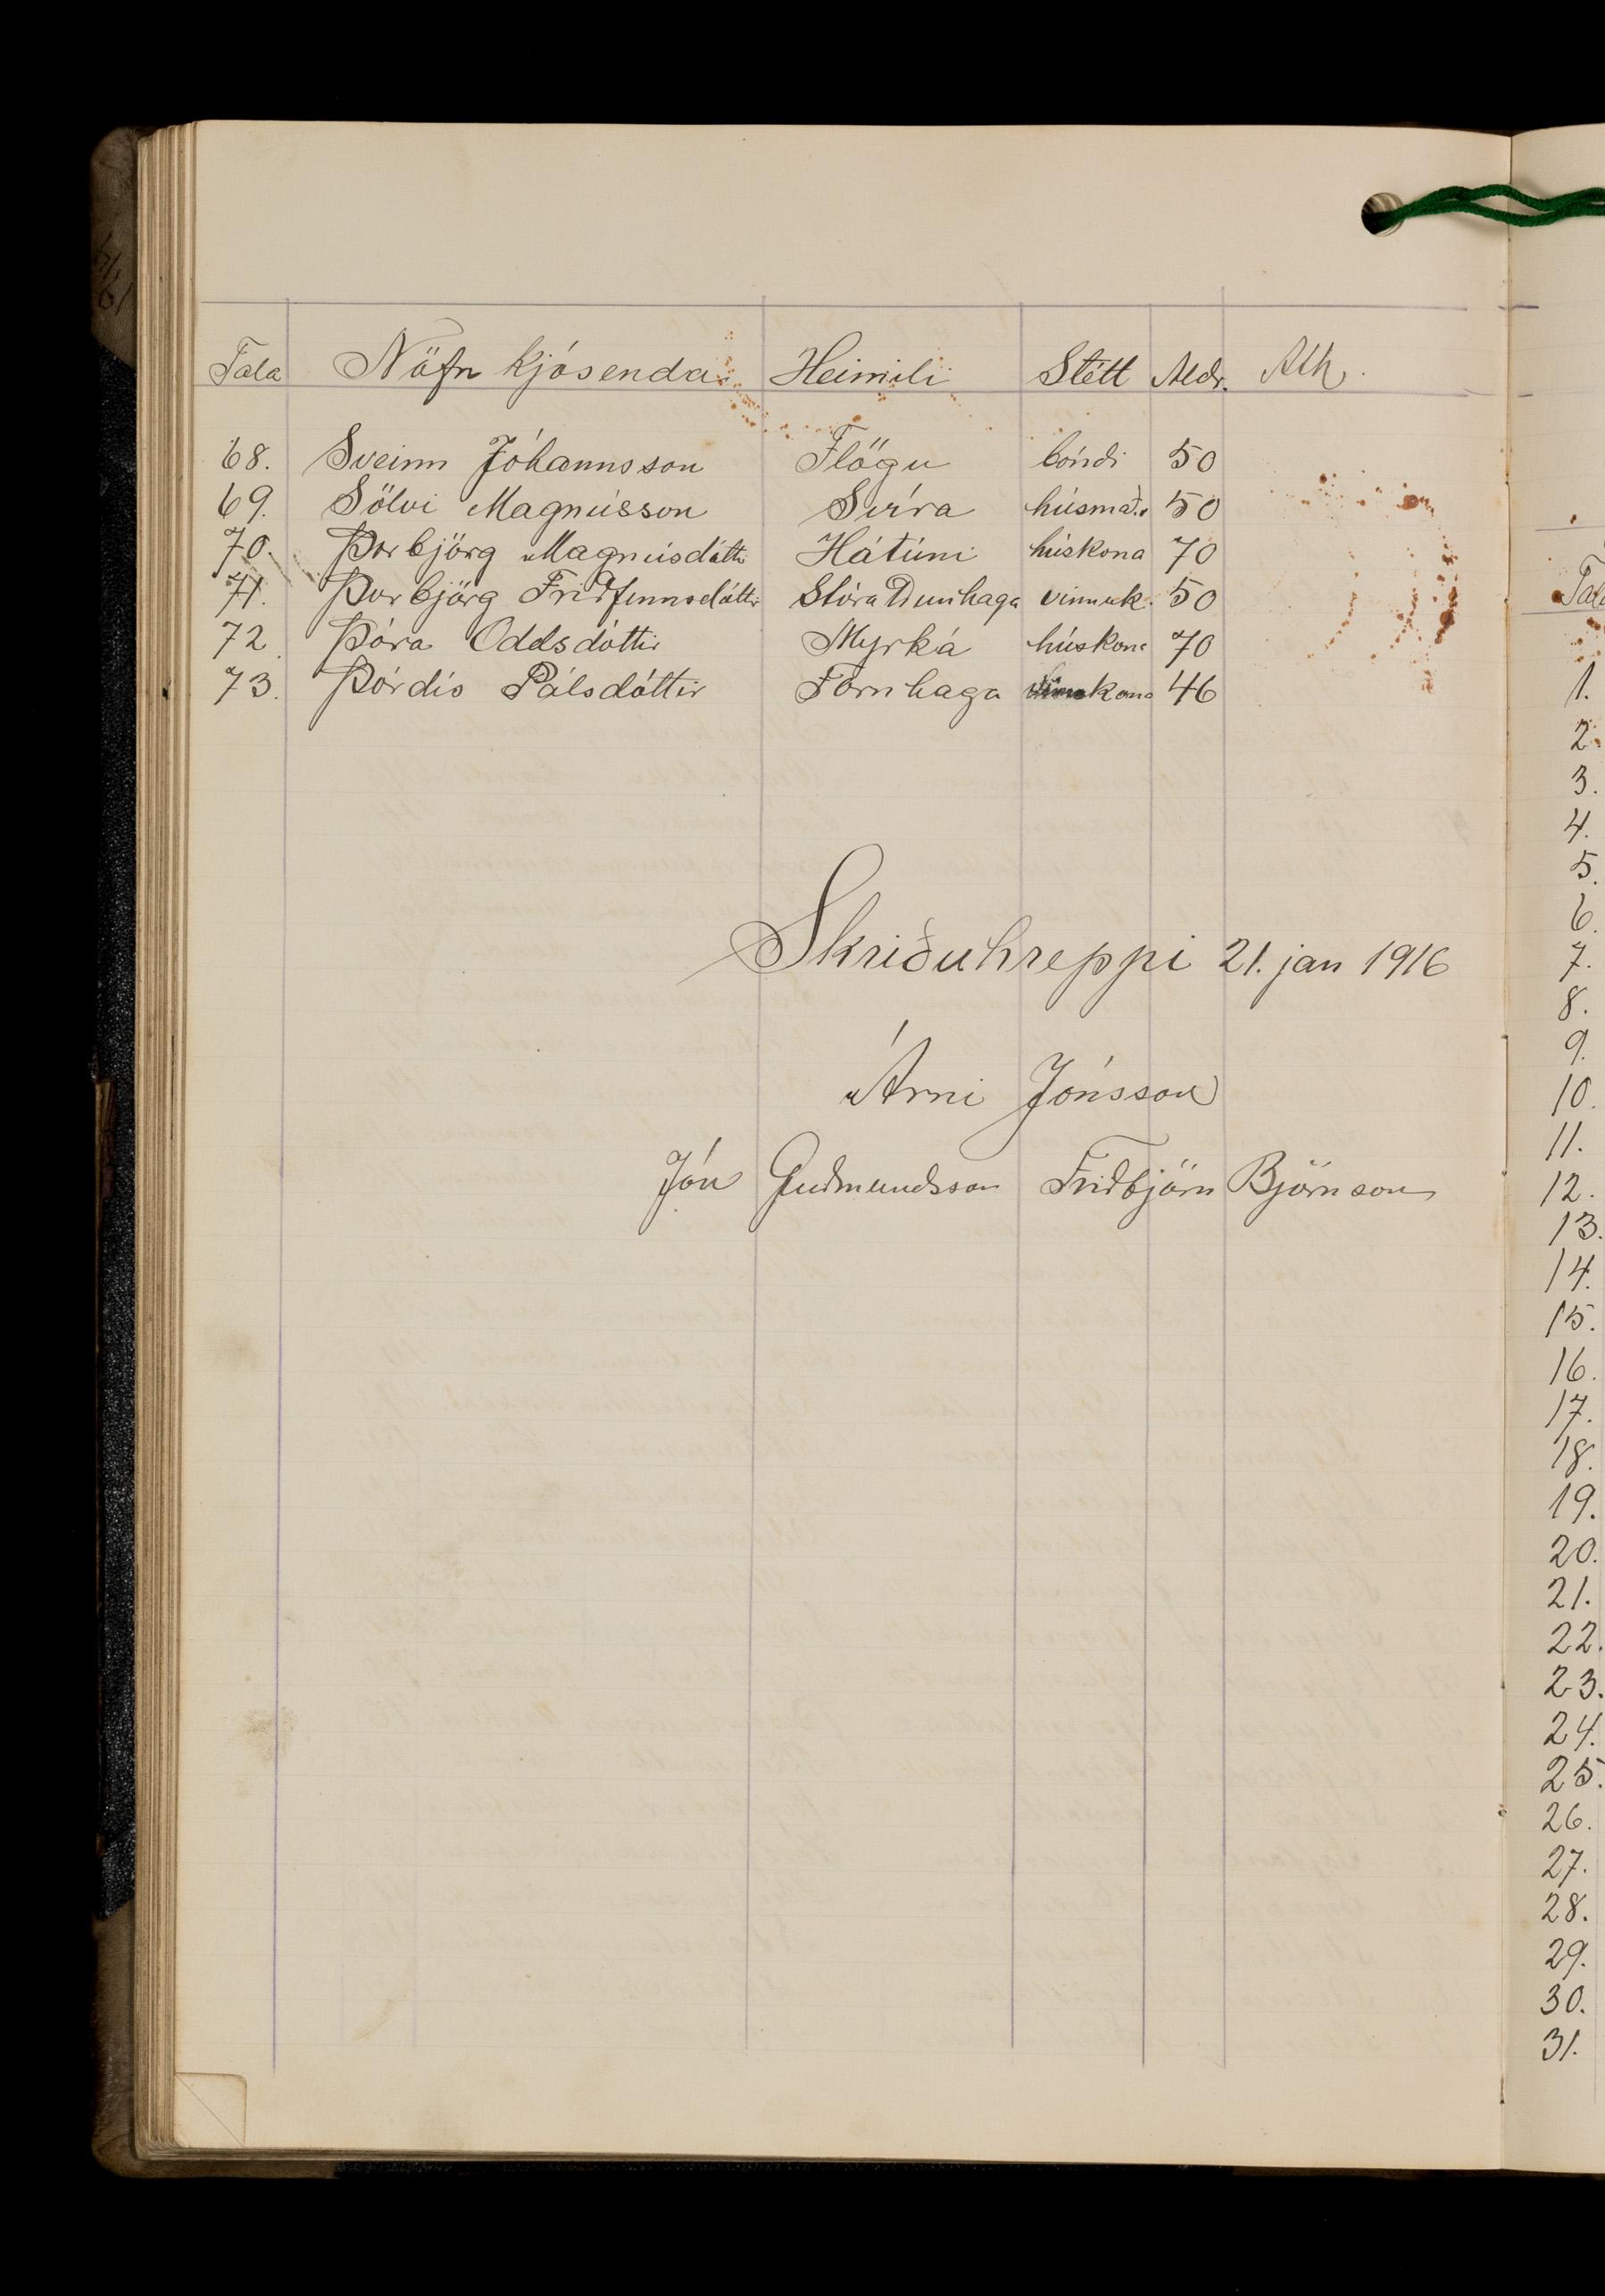 Tala Nöfn kjósenda Heimili Stétt Aldr. Ath.
68. Sveinn Jóhannsson Flögu bóndi 50
69. Sölvi Magnússon Svíra húsmað. 50
70. Þorbjörg Magnúsdóttir Hátúni húskona 70
71. Þorbjörg Friðfinnsdóttir Stóra Dunhaga vinnuk. 50
72. Þóra Oddsdóttir Myrká húskona 70
73. Þórdís Pálsdóttir Fornhaga kona 46
Skriðuhreppi 21. jan 1916
Árni Jónsson
Jón Guðmundsson Friðbjörn Björnsson
Tala
1.
2.
3.
4.
5.
6.
7.
8.
9.
10.
11.
12.
13.
14.
15.
16.
17.
18.
19.
20.
21.
22.
23.
24.
25.
26.
27.
28.
29.
30.
31.